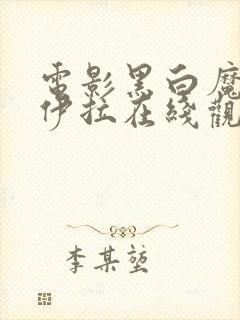 電影黑白魔
伊拉在綫觀
李某堃